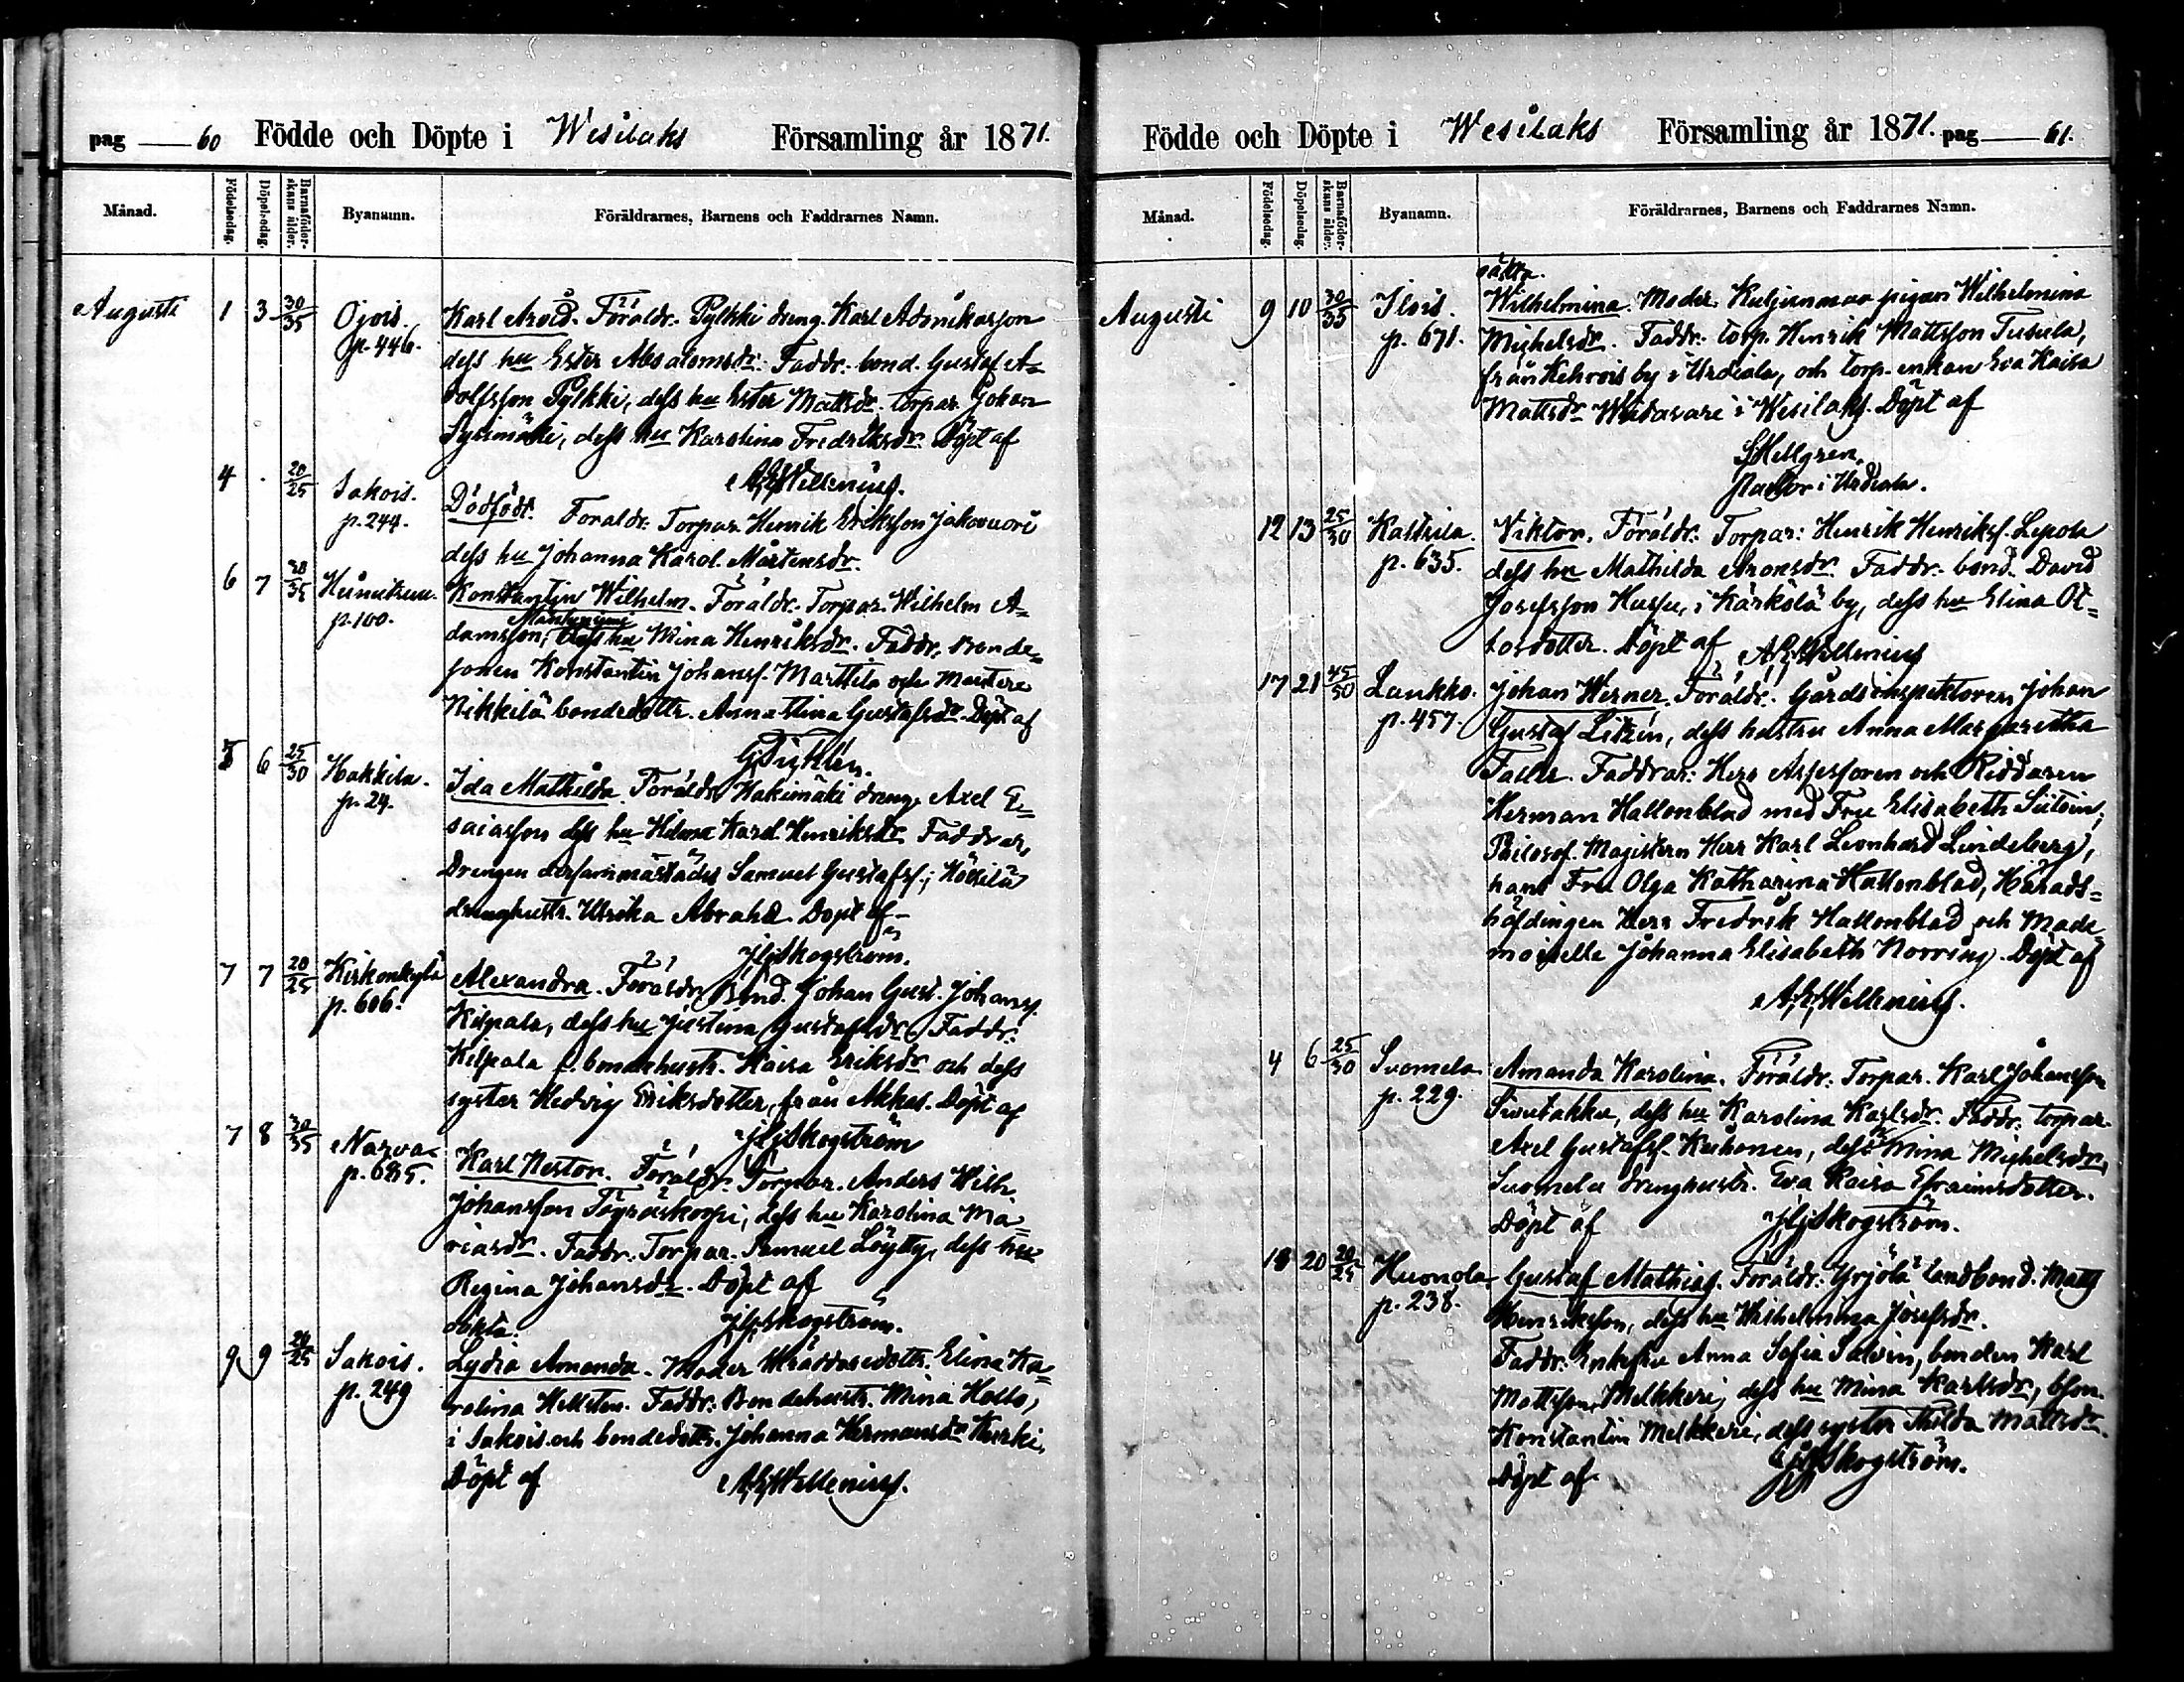 pag 60 Födde och Döpte i Wesilaks Församling år 1871.
Månad. Födelsedag. Döpelsedag. Barnaföderskans ålder. Byanamn. Föräldrarnes, Barnens och Faddrarnes Namn.
Augusti 1 3 30/35 Ojois. p. 446. Karl Arvid. Föräldr. Pylkki dräng Karl Adamikasson
dess hu Ester Absalomsdr. Faddr. bond. Gustaf A=
dolfsson Pylkki, dess hu Ester Mattsdr. torpar. Johan
Sysimäki, dess hu Karolina Fredriksdr. Döpt af
A. Wellenius.
4 . 20/25 Sakois. p. 244. Dödfödt. Föraldr. Torpar. Henrik Eriksson Jakovuori
dess hu Johanna Karol. Mårtensdr.
6 7 30/35 p. 100. Konstantin Wilhelm. Föräldr. Torpar. Wilhelm A=
damsson, dess hu Mina Henriksdr. Faddr. Bonde=
sonen Konstantin Johanss. Marttila och Mantere
Nikkilä bondedottr. Anna Stina Gustafsdr. Döpt af
5 6 25/30 Hakkila. p. 24. Ida Mathilda. Föräldr. Hakimäki dräng. Axel E=
saiasson dess hu Helena Karol. Henriksdr. Faddrar,
Drengen dersammastädes Samuel Gustafss.,
drenghustr. Ulrika Abrahd. Döpt af
J. Skogström.
7 7 20/25 Kirkonkylä p. 606. Alexandra. Föräldr. Bond. Johan Gust. Johanss.
Kilpala, dess hu Justina Gustafsdr. Faddr.
Kilpala f. bondehustr. Kaisa Eriksdr och dess
syster Hedvig Eriksdotter, från Akkas. Döpt af
J. Skogström
7 8 30/35 Narva p. 685. Karl Nestor. Föräldr. Torpar. Anders Wilh.
Johansson Töyräskorpi, dess hu Karolina Ma=
riasdr. Faddr. Torpar. Samuel Löytty, dess hu
Regina Johansdr. Döpt af
J. Skogström.
oäkta.
9 9 20/25 Sakois. p. 249 Lydia Amanda. Moder Skräddaredottr. Elina Ka=
rolina Hellsten. Faddr. Bondehustr. Mina Hollo,
i Sakois och bondedottr. Johanna Hermansdr Kurki.
Döpt af A. Wellenius.
Födde och Döpte i Wesilaks Församling år 1871. pag 61.
Månad. Födelsedag. Döpelsedag. Barnaföderskans ålder. Byanamn. Föräldrarnes, Barnens och Faddrarnes Namn.
oäkta.
Augusti 9 10 30/35 p. 671. Wilhelmina. Moder. Kuljunmaa pigan Wilhelmina
Michelsdr. Faddr. torp. Henrik Mattsson Tusula,
från Kehrois by i Urdiala, och torp. enkan Eva Kaisa
Mattsdr i Wesilaks. Döpt af
Hellgren,
Pastor i Urdiala.
12 13 25/30 Kastrila. p. 635. Viktor. Föräldr. Torpar: Henrik Henrikss. Lepola
dess hu Mathilda Aronsdr. Faddr. bond. David
Josefsson Hussu, i Kärkölä by, dess hu Elina Ot=
tosdotter. Döpt af A. Wellenius
17 21 45/50 Laukko. p. 457. Johan Werner. Föräldr. Gårdsinspektoren Johan
Gustaf Litzén, dess hustru Anna Margaretha
Faddrar: Herr Assessoren och Riddaren
Herman Hallonblad med Fru Elisabeth
Philosof. Magistern Herr Karl Leonhard Lindeberg,
hans Fru Olga Katharina Hallonblad, Härads=
höfdingen Herr Fredrik Hallonblad och Made=
moiselle Johanna Elisabeth Norring. Döpt af
A. Wellenius.
4 6 25/30 Suomela p. 229. Amanda Karolina. Föräldr. Torpar. Karl Johansson
dess hu Karolina Karlsdr. Faddr. torpar.
Axel Gustafss. Kuhonen, dess Mina Michelsdr,
Suomela drenghustr. Eva Kaisa Efraimsdotter.
Döpt af J. Skogström.
18 20 20/25 Huonola p. 238. Gustaf Mathias. Föräldr. Yrjölä landbond. Matts
Henriksson, dess hu Wilhelmina Josefsdr.
Faddr. Enkefru Anna Sofia Salvin, bonden Karl
Mattsson Melkkeri, dess hu Mina Karlsdr, bson.
Konstantin Melkkeri, dess syster Thilda Mattsdr.
Döpt af J. Skogström.